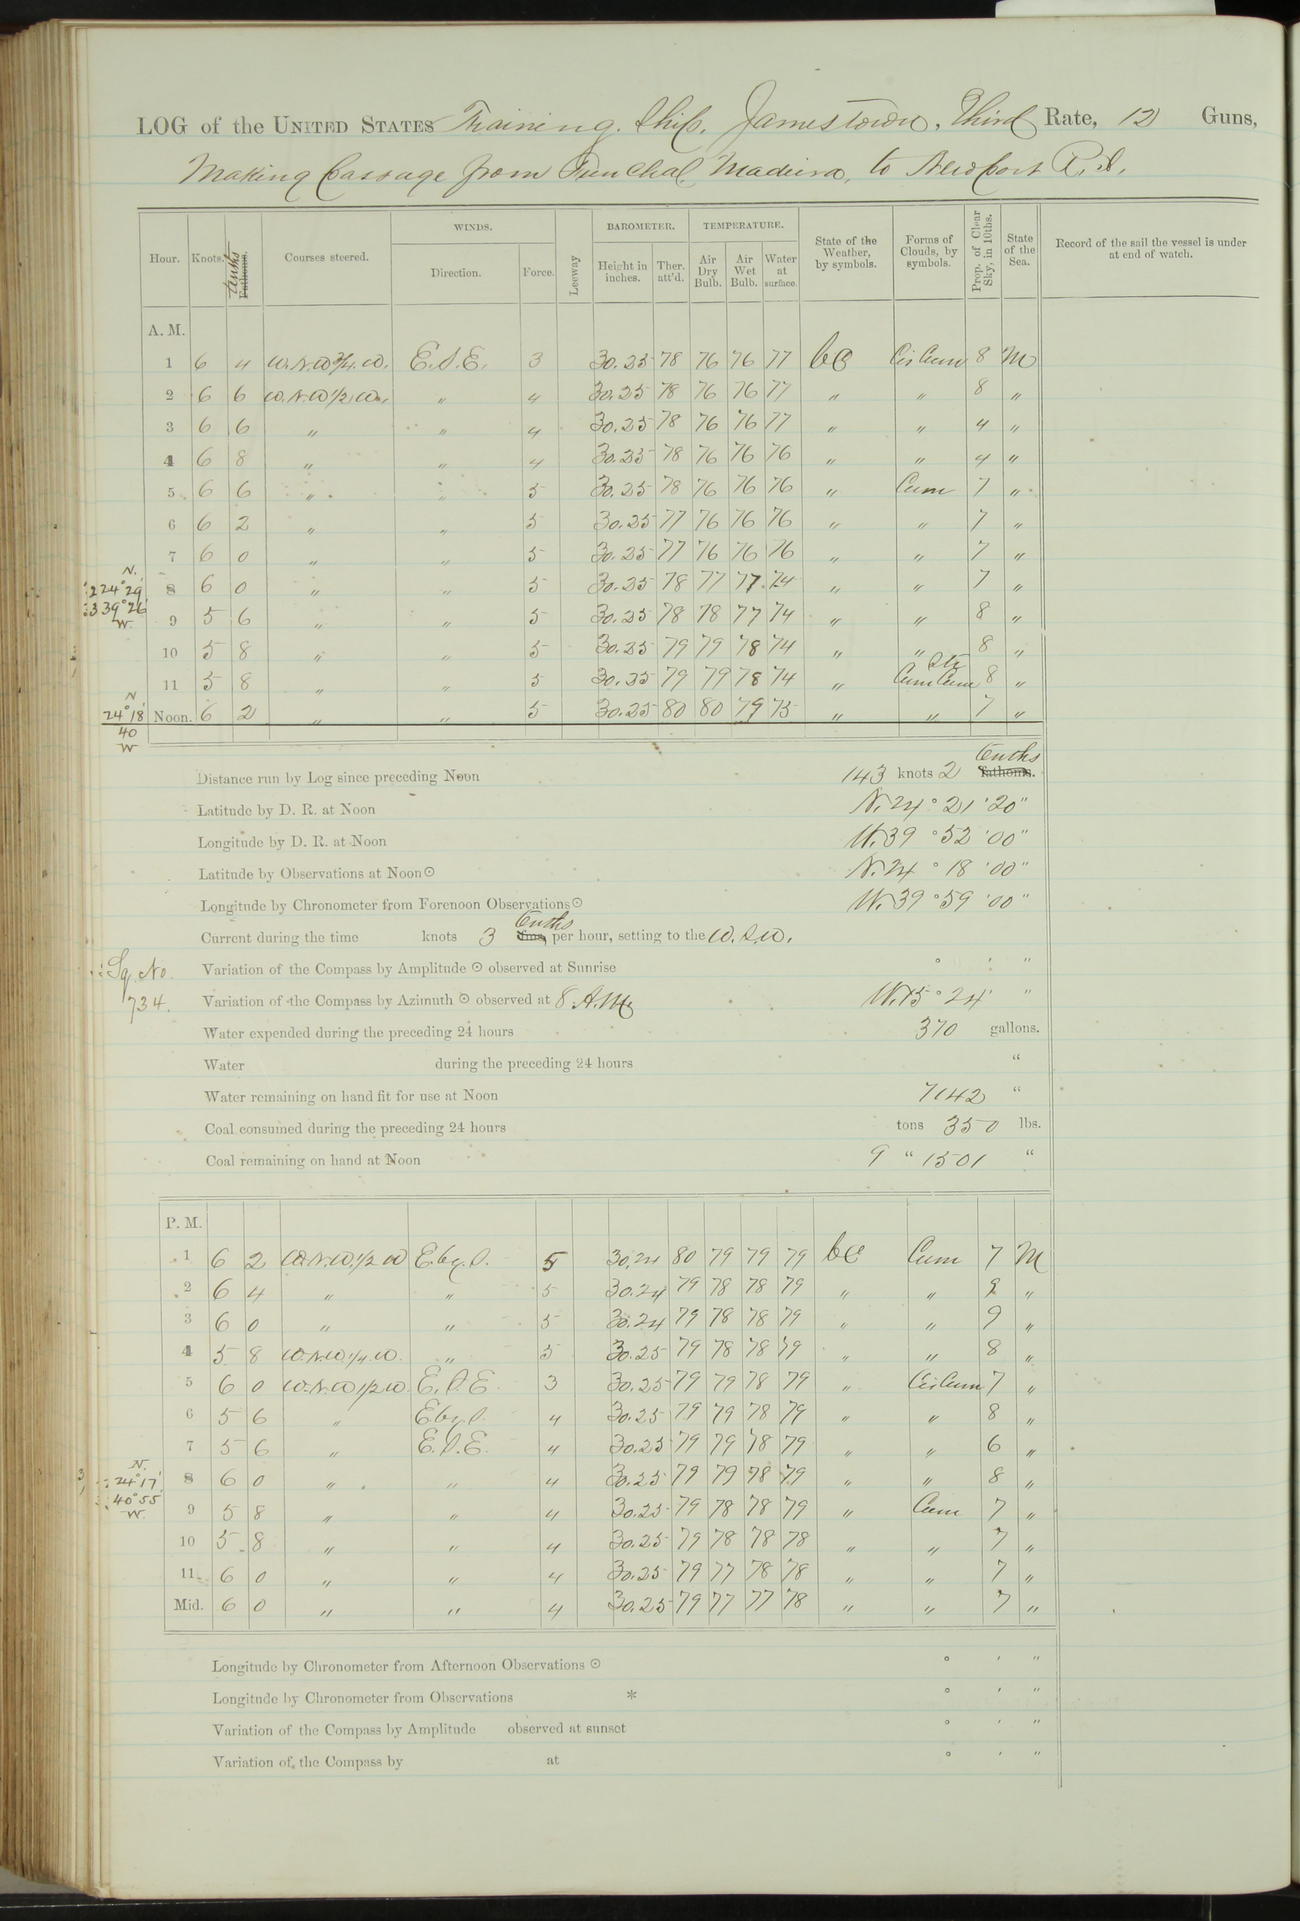 LOG of the UNITED STATES Training Ship, Jamestown, Third Rate, 12 Guns,
Making Passage from Funchal Madeira, to Newport R.I.
Hour. Knots. Tenths Fathoms. Courses steered. WINDS. Direction. Force. Leeway BAROMETER. Height in inches. Ther. att'd. TEMPERATURE. Air Dry Bulb. Air Wet Bulb. Water at surface. State of the Weather, by symbols. Forms of Clouds, by symbols. Prop. of Clear Sky, in 10ths. State of the Sea. Record of the sail the vessel is under at end of watch.
A. M.
1 6 4 W.N.W 3/4 W. E.S.E. 3 30.25 78 76 76 77 bc Cir Cum 8 M
2 6 6 W.N.W 1/2 W. " 4 30.25 78 76 76 77 " " 8 "
3 6 6 " " 4 30.25 78 76 76 77 " " 4 "
4 6 8 " " 4 30.25 78 76 76 76 " " 4 "
5 6 6 " " 5 30.25 78 76 76 76 " Cum 7 "
6 6 2 " " 5 30.25 77 76 76 76 " " 7 "
7 6 0 " " 5 30.25 77 76 76 76 " " 7 "
N.
24° 29'
39° 26'
W.
8 6 0 " " 5 30.25 78 77 77 74 " " 7 "
9 5 6 " " 5 30.25 78 78 77 74 " " 8 "
10 5 8 " " 5 30.25 79 79 78 74 " " 8 "
11 5 8 " " 5 30.25 79 79 78 74 " Cum Str Cum 8 "
N
24° 18'
40
W
Noon. 6 2 " " 5 30.25 80 80 79 75 " " 7 "
Distance run by Log since preceding Noon 143 knots 2 Tenths fathoms.
Latitude by D. R. at Noon N. 24 ° 21 ' 20 "
Longitude by D. R. at Noon W. 39 ° 52 ' 00 "
Latitude by Observations at Noon ☉ N. 24 ° 18 ' 00 "
Longitude by Chronometer from Forenoon Observations ☉ W. 39 ° 59 ' 00 "
Current during the time knots 3 Tenths fms. per hour, setting to the W.S.W.
Variation of the Compass by Amplitude ☉ observed at Sunrise ° ' "
Sq. No.
734.
Variation of the Compass by Azimuth ☉ observed at 8 A.M. W. 15 ° 24 ' "
Water expended during the preceding 24 hours 370 gallons.
Water during the preceding 24 hours "
Water remaining on hand fit for use at Noon 7142 "
Coal consumed during the preceding 24 hours tons 350 lbs.
Coal remaining on hand at Noon 9 " 1501 "
P. M.
1 6 2 W.N.W. 1/2 W E by S. 5 30.24 80 79 79 79 bc Cum 7 M
2 6 4 " " 5 30.24 79 78 78 79 " " 9 "
3 6 0 " " 5 30.24 79 78 78 79 " " 9 "
4 5 8 W.N.W. 1/4 W. " 5 30.25 79 78 78 79 " " 8 "
5 6 0 W.N.W 1/2 W. E.S.E 3 30.25 79 79 78 79 " Cir Cum 7 "
6 5 6 " E by S. 4 30.25 79 79 78 79 " " 8 "
7 5 6 " E.S.E. 4 30.25 79 79 78 79 " " 6 "
N.
24° 17'
40° 55
W.
8 6 0 " " 4 30.25 79 79 78 79 " " 8 "
9 5 8 " " 4 30.25 79 78 78 79 " Cum 7 "
10 5 8 " " 4 30.25 79 78 78 78 " " 7 "
11 6 0 " " 4 30.25 79 77 78 78 " " 7 "
Mid. 6 0 " " 4 30.25 79 77 77 78 " " 7 "
Longitude by Chronometer from Afternoon Observations ☉ ° ' "
Longitude by Chronometer from Observations * ° ' "
Variation of the Compass by Amplitude observed at sunset ° ' "
Variation of the Compass by at ° ' "